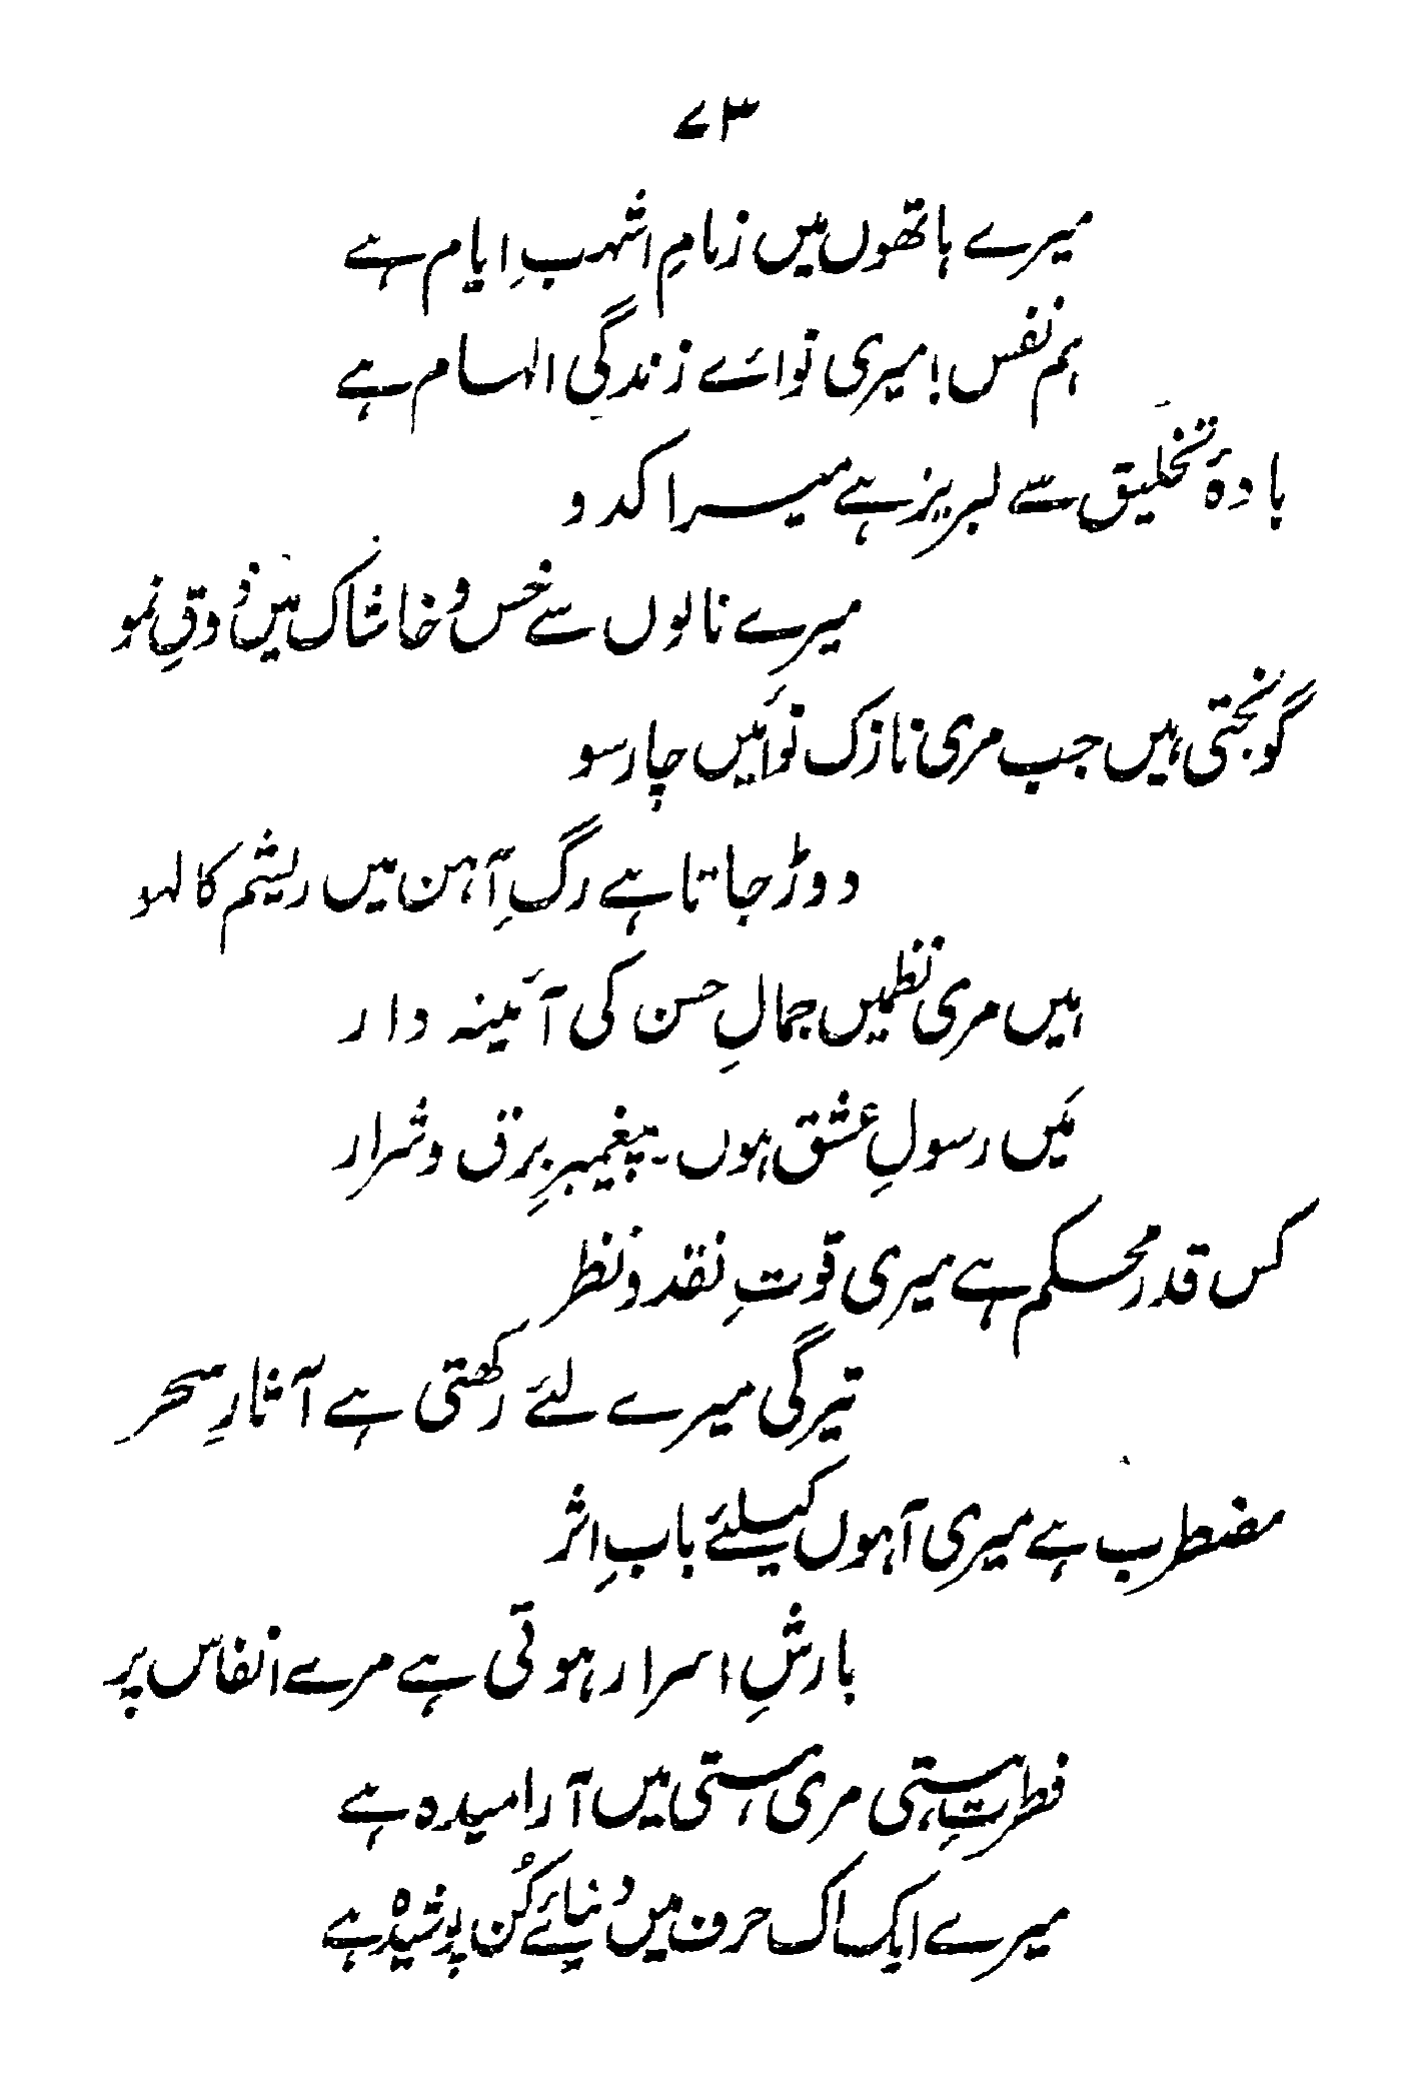 ۷۳
میرے ہاتھوں میں زمامِ اشہبِ ایام ہے
ہم نفس! میری نوائے زندگی الہام ہے
بادۂ تخلیق سے لبریز ہے میرا کدو
میرے نالوں سے خس و خاشاک میں ذوقِ نمو
گونجتی ہیں جب مری نازک نوائیں چارسو
دوڑ جاتا ہے رگِ آہن میں ریشم کا لہو
ہیں مری نظمیں جمالِ حسن کی آئینہ دار
مَیں رسولِ عشق ہوں۔ پیغمبرِ برق و شرار
کس قدر محکم ہے میری قوتِ نقد و نظر
تیرگی میرے لئے رکھتی ہے آثارِ سحر
مضطرب ہے میری آہوں کیلئے بابِ اثر
بارشِ اسرار ہوتی ہے مرے انفاس پر
فطرتِ ہستی مری ہستی میں آرامیدہ ہے
میرے ایک اک حرف میں دُنیائے کُن پوشیدہ ہے